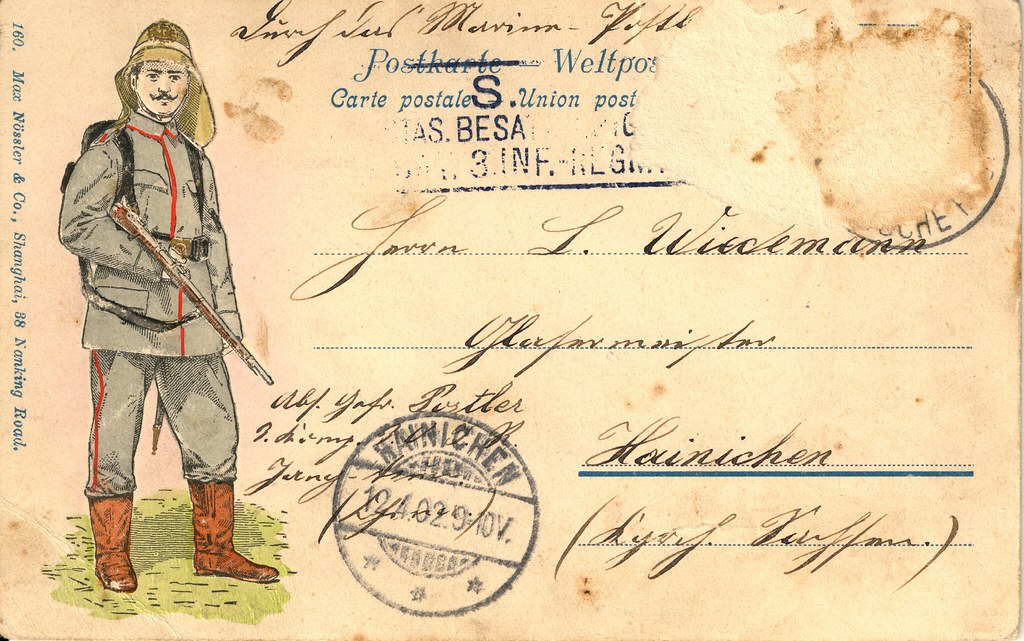 160. Max Nössler & Co., Shanghai, 38 Nanking Road.
Durch das Marine-Postb
Postkarte – Weltpos
Carte postale Union post
S.
TAS. BESA
3. INF.-REGM.
Herrn L. Wiedemann
Glasermeister
Hainichen
(Kgrch. Sachsen.)
Abs. Gefr. Postler
HAINICHEN
19.4.02.9-10V.
SCHE